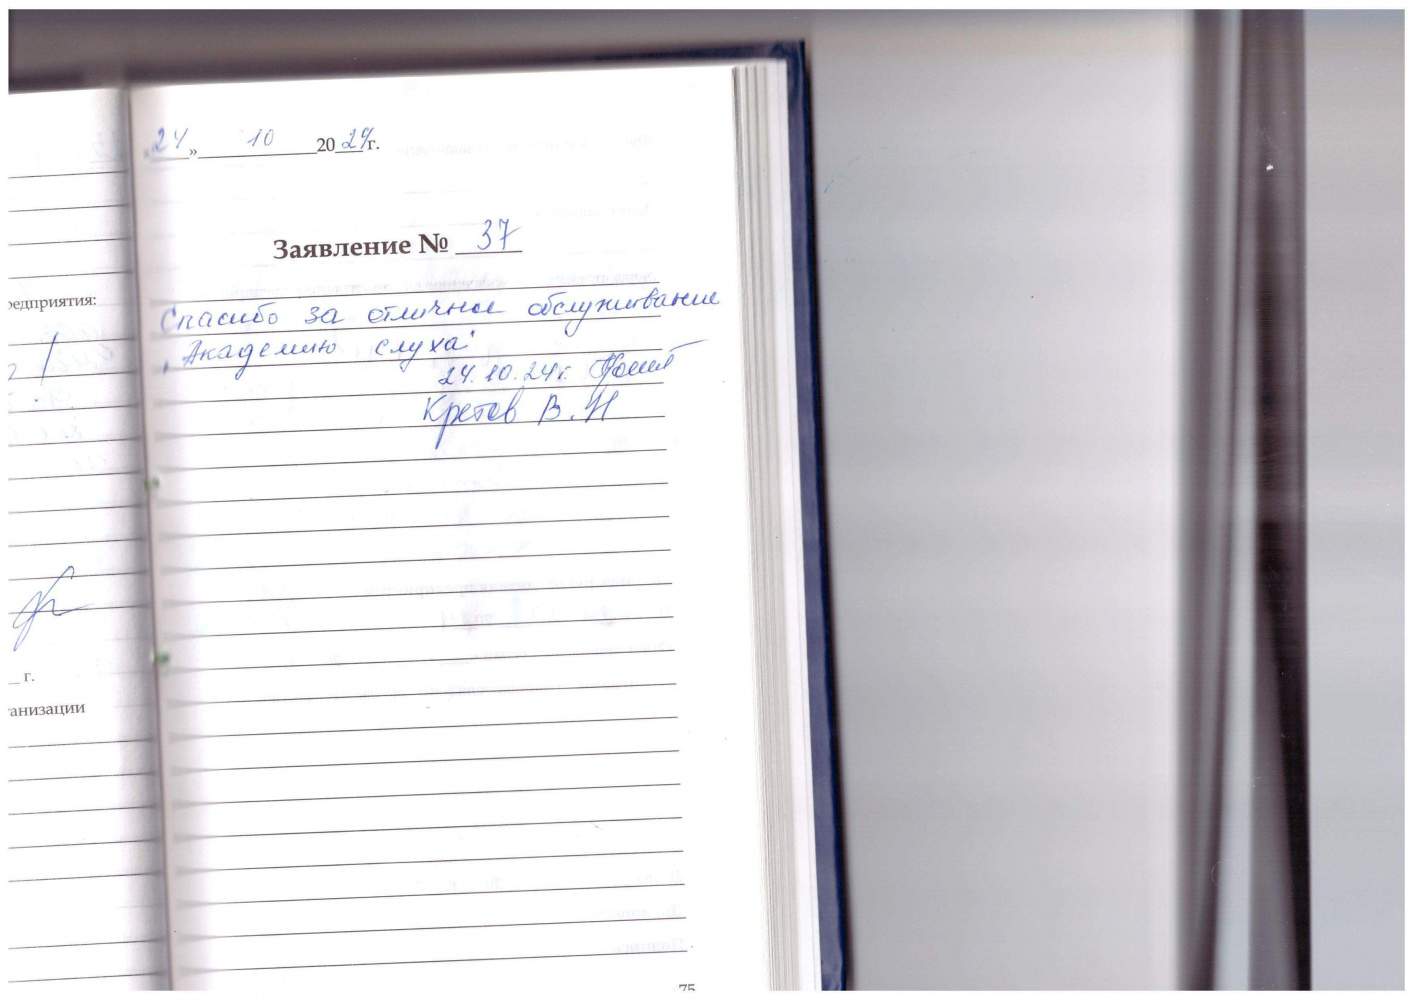 «24» 10 2024 г.
Заявление № 37
Спасибо за отличное обслуживание
"Академию слуха"
24.10.24г.
Кретов В.Н
редприятия:
г.
анизации
75